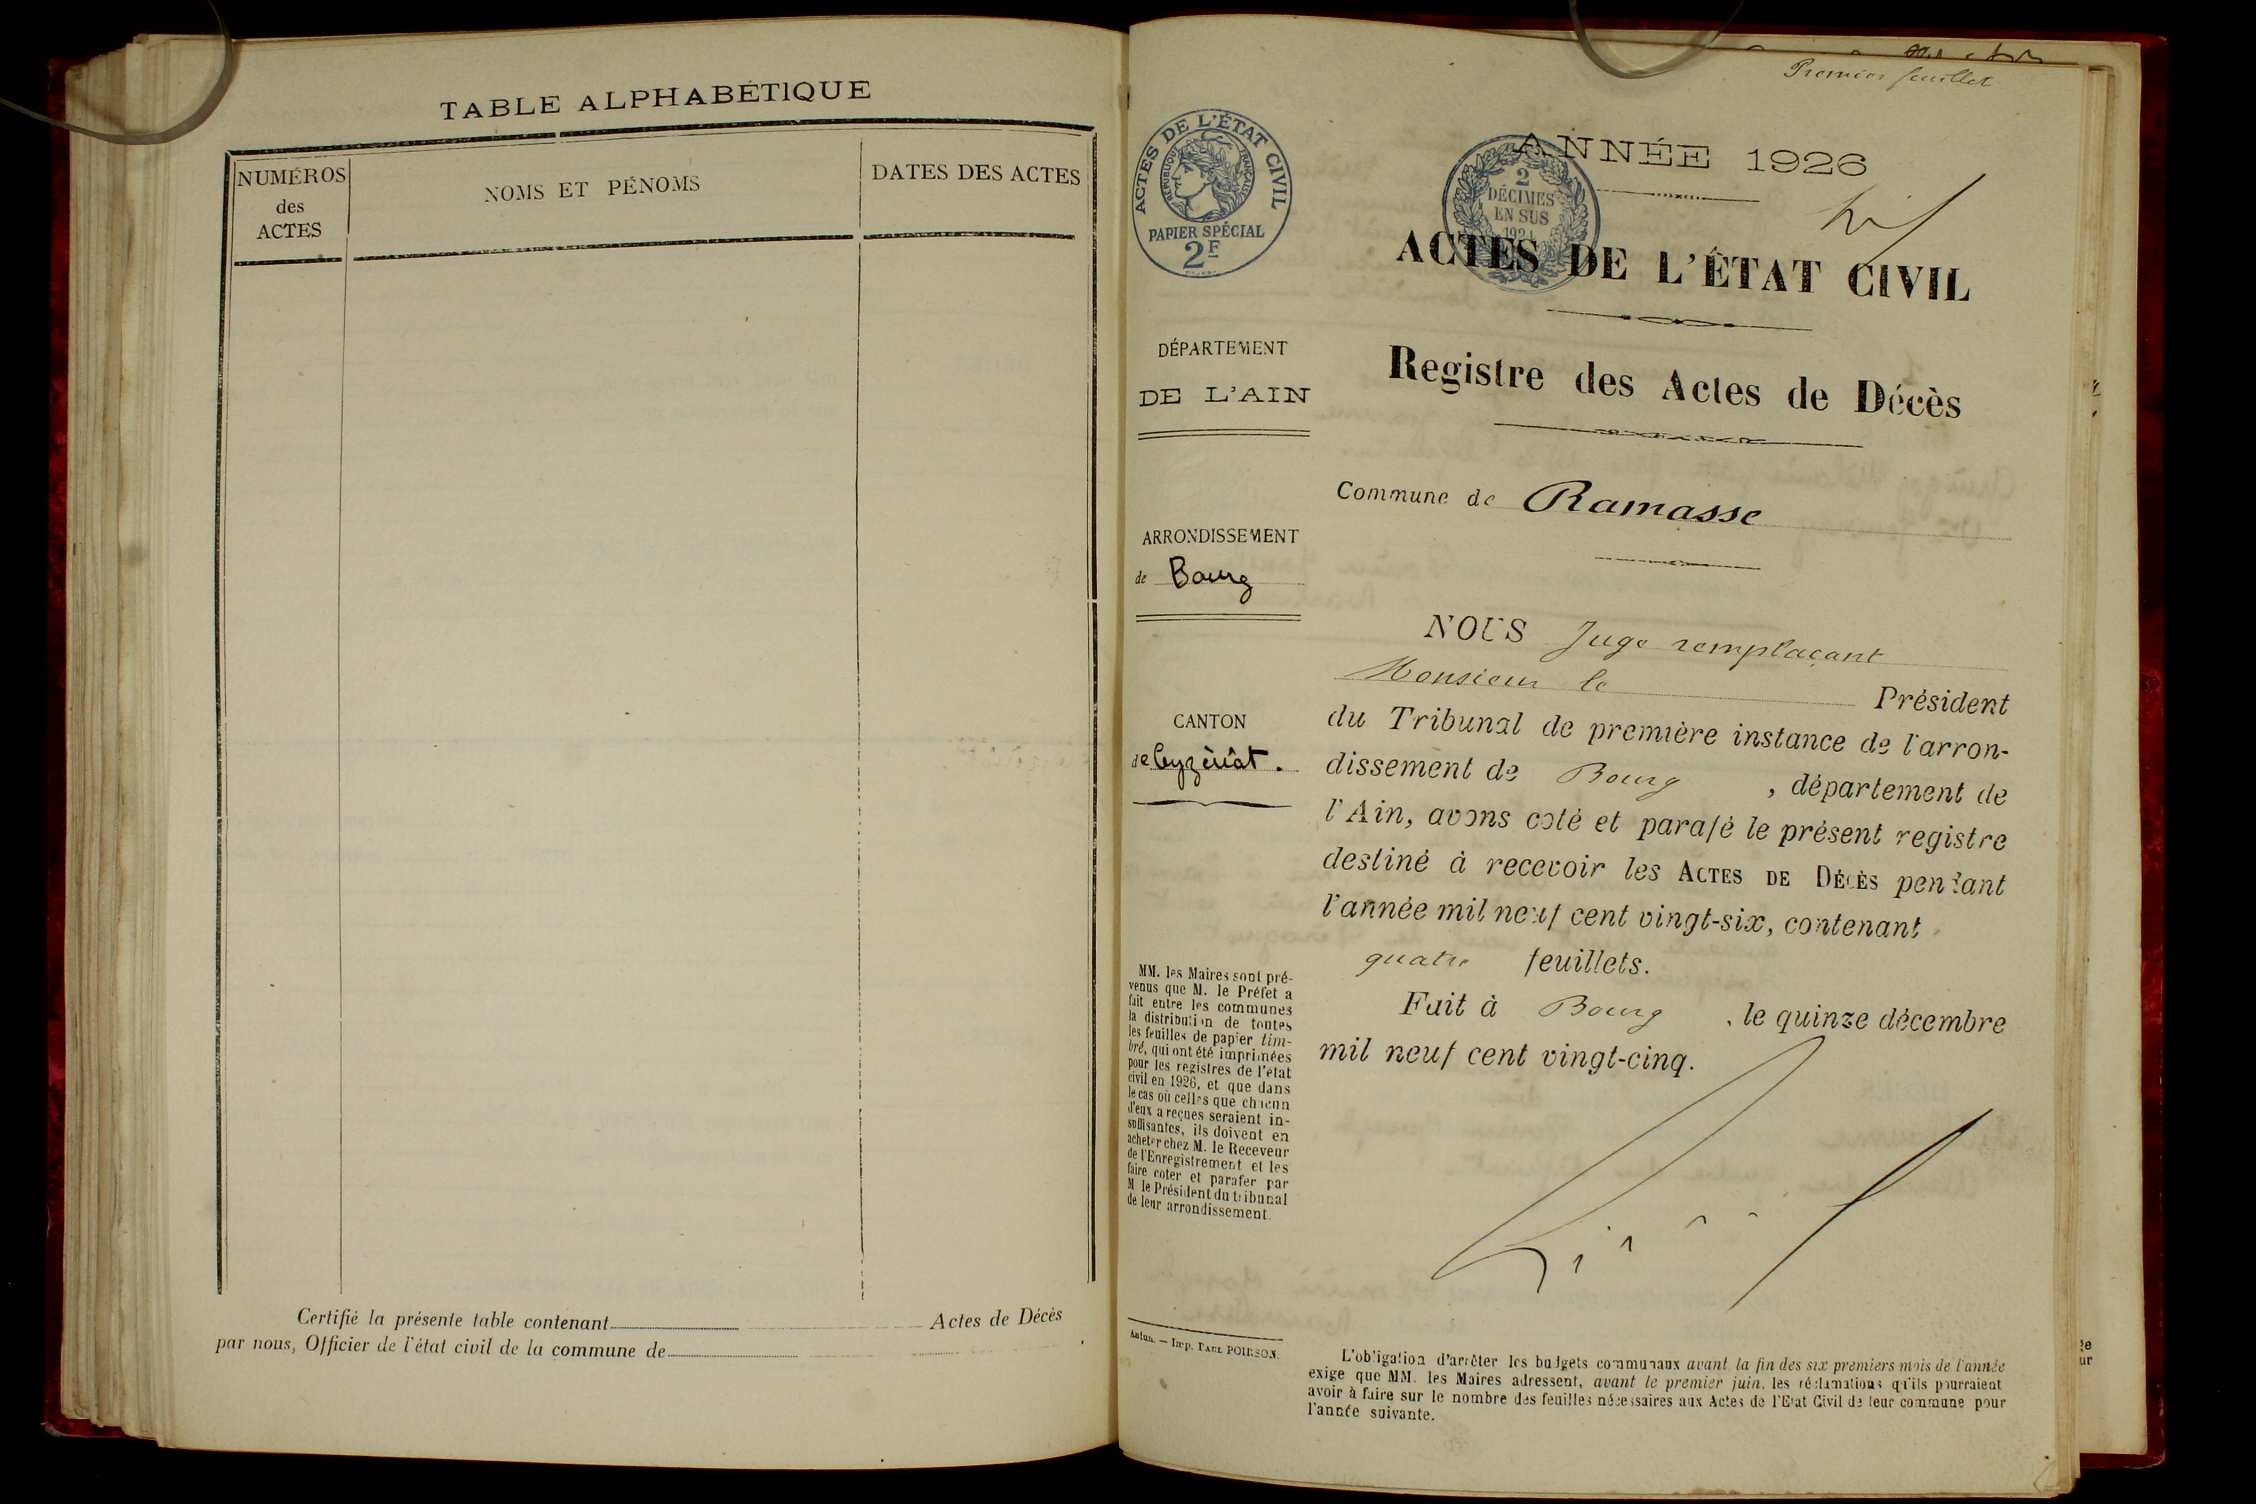 TABLE ALPHABÉTIQUE
NUMÉROS
des
ACTES
NOMS ET PÉNOMS
DATES DES ACTES
Certifié la présente table contenant Actes de Décès
par nous, Officier de l'état civil de la commune de
Premier feuillet
ACTES DE L'ÉTAT CIVIL
RÉPUBLIQUE FRANÇAISE
PAPIER SPÉCIAL
2F
2
DÉCIMES
EN SUS
1924
ANNÉE 1926
ACTES DE L'ÉTAT CIVIL
Registre des Actes de Décès
DÉPARTEMENT
DE L'AIN
ARRONDISSEMENT
de Bourg
CANTON
de Ceyzériat.
MM. les Maires sont pré-
venus que M. le Préfet a
fait entre les communes
la distribution de toutes
les feuilles de papier tim-
bré, qui ont été imprimées
pour les registres de l'état
civil en 1926, et que dans
le cas où celles que chacun
d'eux a reçues seraient in-
suffisantes, ils doivent en
acheter chez M. le Receveur
de l'Enregistrement et les
faire coter et parafer par
M le Président du tribunal
de leur arrondissement.
Autun. — Imp. PAUL POIRSON.
Commune de Ramasse
NOUS Juge remplaçant
Monsieur le Président
du Tribunal de première instance de l'arron-
dissement de Bourg , département de
l'Ain, avons coté et parafé le présent registre
destiné à recevoir les ACTES DE DÉCÈS pendant
l'année mil neuf cent vingt-six, contenant
quatre feuillets.
Fait à Bourg , le quinze décembre
mil neuf cent vingt-cinq.
L'obligation d'arrêter les budgets communaux avant la fin des six premiers mois de l'année
exige que MM. les Maires adressent, avant le premier juin, les réclamations qu'ils pourraient
avoir à faire sur le nombre des feuilles nécessaires aux Actes de l'Etat Civil de leur commune pour
l'année suivante.